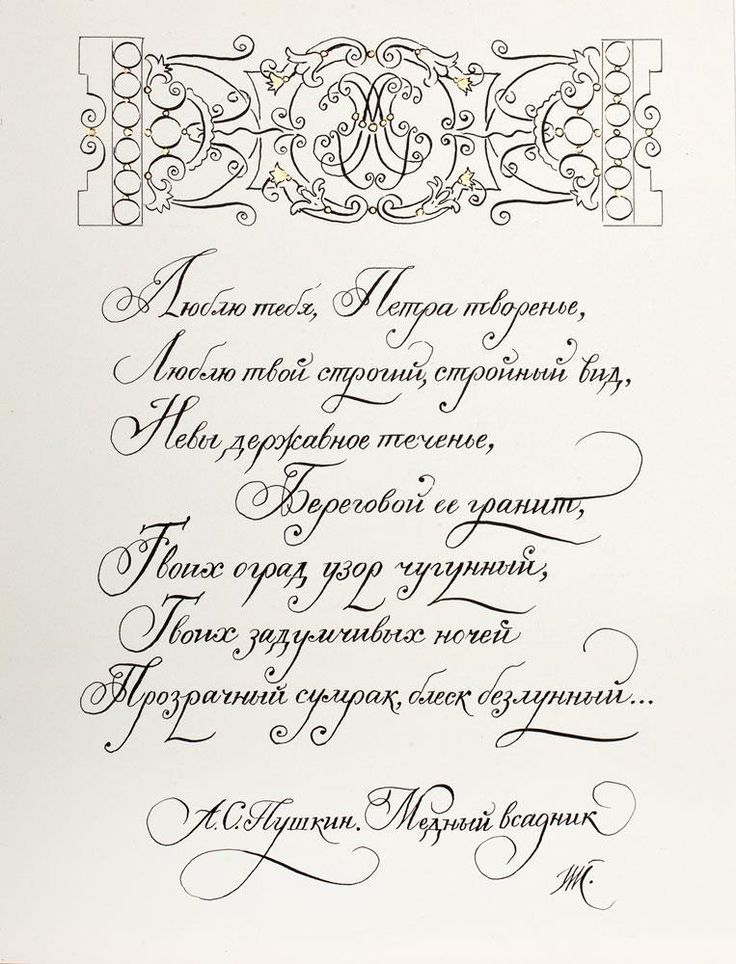 Люблю тебя, Петра творенье,
Люблю твой строгий, стройный вид,
Невы державное теченье,
Береговой ее гранит,
Твоих оград узор чугунный,
Твоих задумчивых ночей
Прозрачный сумрак, блеск безлунный...
А.С.Пушкин. Медный всадник